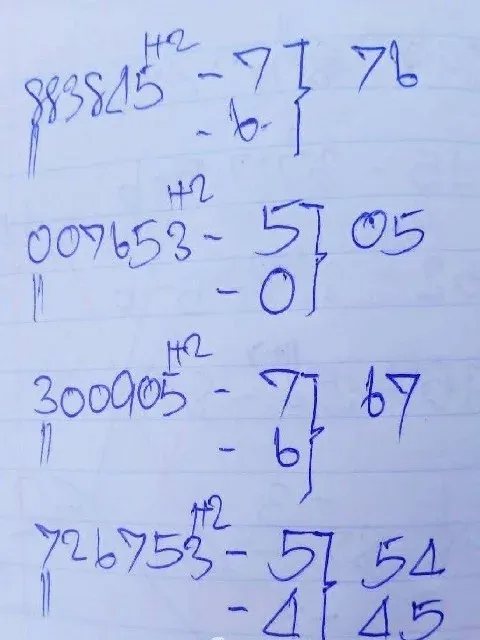 +2
883845 - 7] 76
|| - 6- }
+2
007653 - 5] 05
|| - 0 }
+2
300905 - 7] 67
|| - 6 }
+2
726753 - 5] 54
|| - 4 45